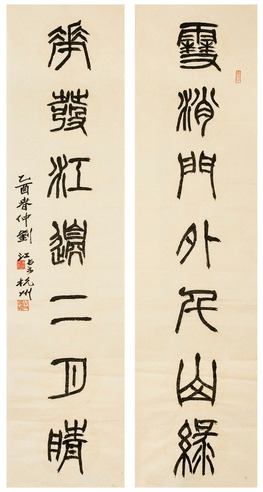 雪消門外千山綠
花發江邊二月晴
乙酉春仲劉
江書於杭州